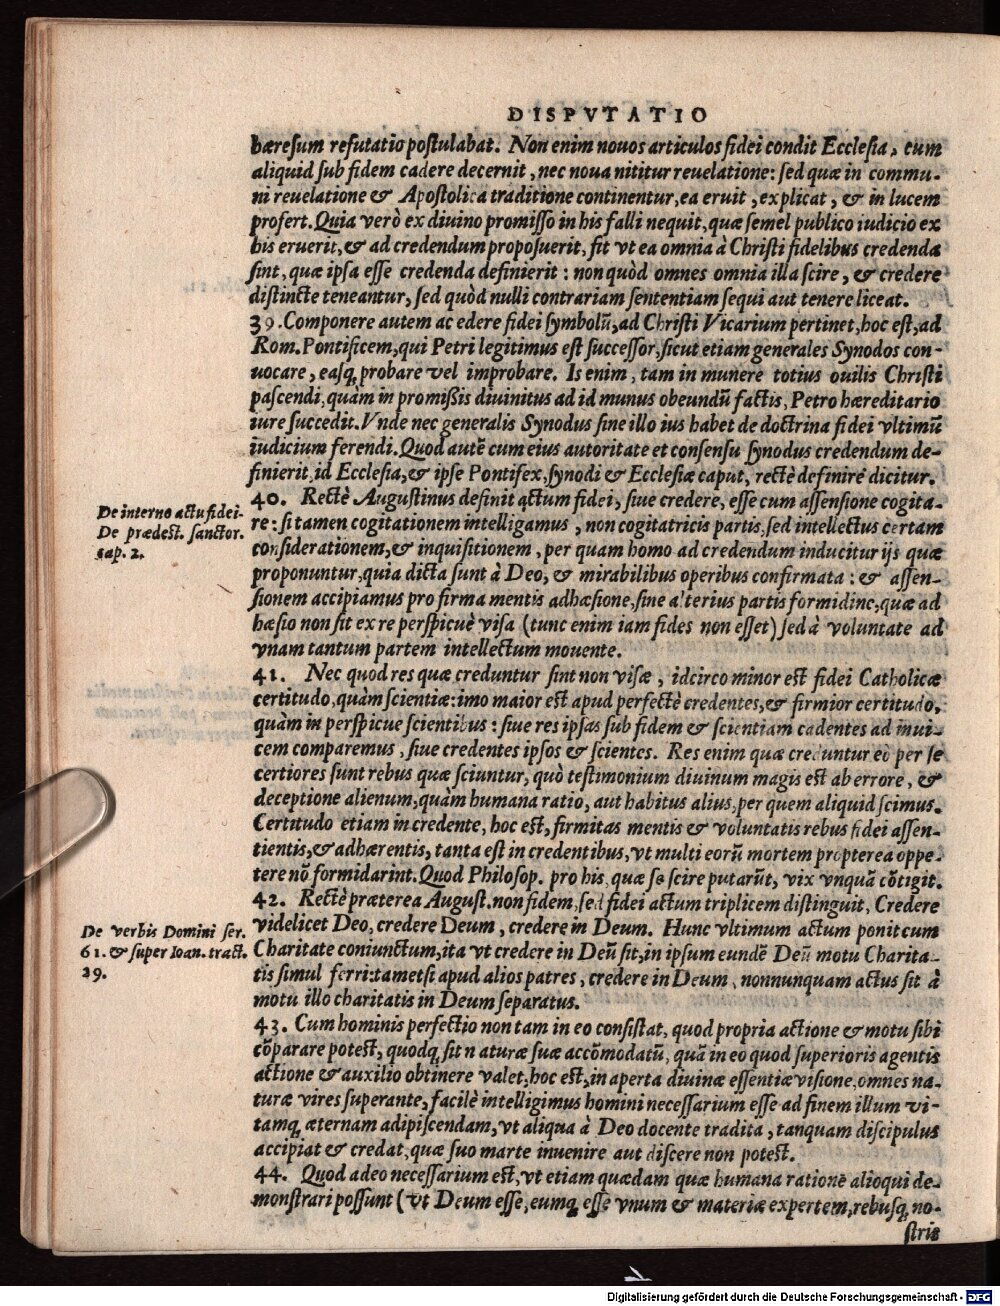 DISPVTATIO
hæresum refutatio postulabat. Non enim nouos articulos fidei condit Ecclesia, cum
aliquid sub fidem cadere decernit, nec noua nititur reuelatione: sed quæ in commu-
ni reuelatione & Apostolica traditione continentur, ea eruit, explicat, & in lucem
profert. Quia verò ex diuino promisso in his falli nequit, quæ semel publico iudicio ex
his eruerit, & ad credendum proposuerit, fit vt ea omnia à Christi fidelibus credenda
sint, quæ ipsa esse credenda definierit: non quòd omnes omnia illa scire, & credere
distincte teneantur, sed quòd nulli contrariam sententiam sequi aut tenere liceat.
39. Componere autem ac edere fidei symbolũ, ad Christi Vicarium pertinet, hoc est, ad
Rom. Pontificem, qui Petri legitimus est successor, sicut etiam generales Synodos con-
uocare, easq; probare vel improbare. Is enim, tam in munere totius ouilis Christi
pascendi, quàm in promißis diuinitus ad id munus obeundũ factis, Petro hæreditario
iure succedit. Vnde nec generalis Synodus sine illo ius habet de doctrina fidei vltimũ
iudicium ferendi. Quod autẽ cum eius autoritate et consensu synodus credendum de-
finierit, id Ecclesia, & ipse Pontifex, synodi & Ecclesiæ caput, rectè definire dicitur.
De interno actu fidei.
De prædest. sanctor.
cap. 2.
40. Rectè Augustinus definit actum fidei, siue credere, esse cum assensione cogita-
re: si tamen cogitationem intelligamus, non cogitatricis partis, sed intellectus certam
considerationem, & inquisitionem, per quam homo ad credendum inducitur ijs quæ
proponuntur, quia dicta sunt à Deo, & mirabilibus operibus confirmata: & assen-
sionem accipiamus pro firma mentis adhæsione, sine alterius partis formidine, quæ ad
hæsio non sit ex re perspicuè visa (tunc enim iam fides non esset) sed à voluntate ad
vnam tantum partem intellectum mouente.
41. Nec quod res quæ creduntur sint non visæ, idcirco minor est fidei Catholicæ
certitudo, quàm scientiæ: imo maior est apud perfectè credentes, & firmior certitudo,
quàm in perspicue scientibus: siue res ipsas sub fidem & scientiam cadentes ad inui-
cem comparemus, siue credentes ipsos & scientes. Res enim quæ creduntur eo per se
certiores sunt rebus quæ sciuntur, quò testimonium diuinum magis est ab errore, &
deceptione alienum, quàm humana ratio, aut habitus alius, per quem aliquid scimus.
Certitudo etiam in credente, hoc est, firmitas mentis & voluntatis rebus fidei assen-
tientis, & adhærentis, tanta est in credentibus, vt multi eorũ mortem propterea oppe-
tere nõ formidarint. Quod Philosop. pro his, quæ se scire putarũt, vix vnquã cõtigit.
De verbis Domini ser.
61. & super Ioan. tract.
29.
42. Rectè præterea August. non fidem, sed fidei actum triplicem distinguit, Credere
videlicet Deo, credere Deum, credere in Deum. Hunc vltimum actum ponit cum
Charitate coniunctum, ita vt credere in Deũ sit, in ipsum eundẽ Deũ motu Charita-
tis simul ferri: tametsi apud alios patres, credere in Deum, nonnunquam actus sit à
motu illo charitatis in Deum separatus.
43. Cum hominis perfectio non tam in eo consistat, quod propria actione & motu sibi
cõparare potest, quodq; sit naturæ suæ accõmodatũ, quã in eo quod superioris agentis
actione & auxilio obtinere valet, hoc est, in aperta diuinæ essentiæ visione, omnes na-
turæ vires superante, facilè intelligimus homini necessarium esse ad finem illum vi-
tamq; æternam adipiscendam, vt aliqua à Deo docente tradita, tanquam discipulus
accipiat & credat, quæ suo marte inuenire aut discere non potest.
44. Quod adeo necessarium est, vt etiam quædam quæ humana ratione alioqui de-
monstrari possunt (vt Deum esse, eumq; esse vnum & materiæ expertem, rebusq; no-
stris
Digitalisierung gefördert durch die Deutsche Forschungsgemeinschaft - DFG